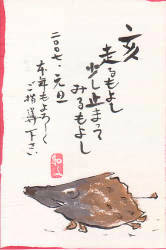 亥
走るもよし
少し止まって
みるもよし
二〇〇七・元旦
本年もよろしく
ご指導下さい